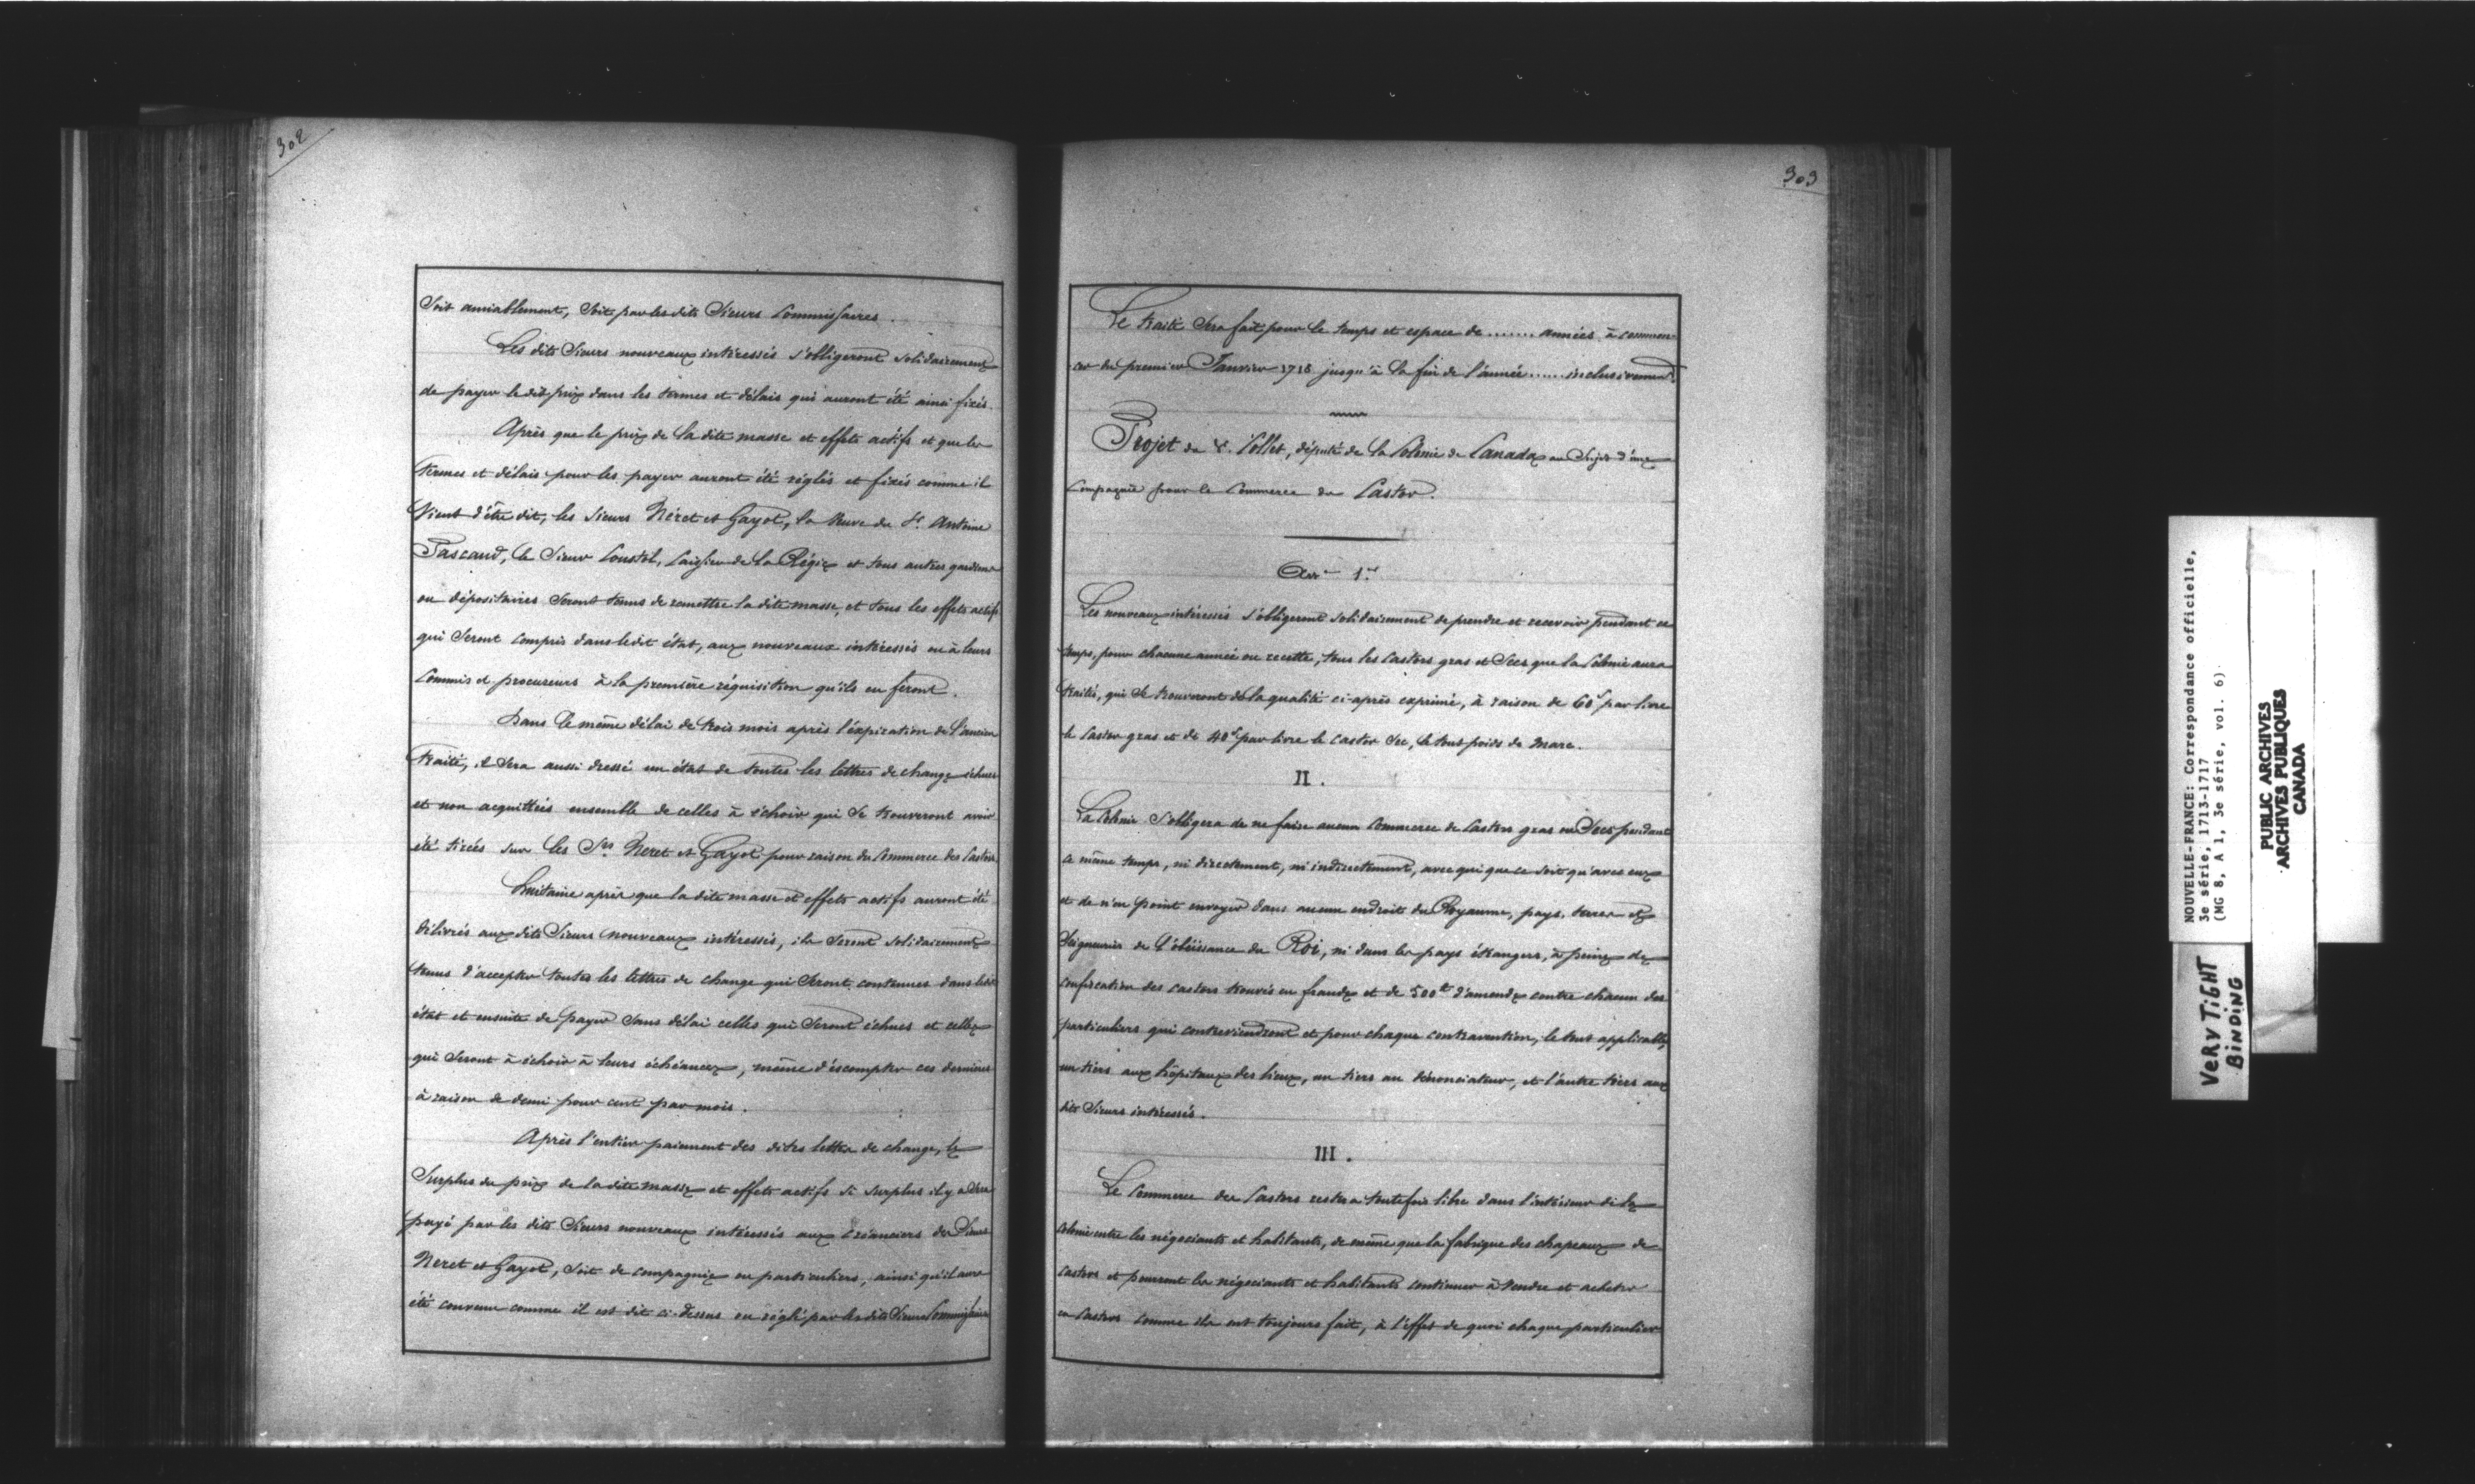 302
Soit amiablement, Soit par les dits Sieurs Commissaires.
Les dits Sieurs nouveaux intéressés s'obligeront solidairement
de payer le dit prix dans les termes et délais qui auront été ainsi fixés.
Après que le prix de la dite masse et effets actifs et que les
termes et délais pour les payer auront été réglés et fixés comme il
Vient d'être dit, les Sieurs Néret et Gayot, la Veuve du Sr. Antoine
Pascaud, le Sieur Coustol, Caissier de la Régie et tous autres gardiens
ou dépositaires Seront tenus de remettre la dite masse, et tous les effets actifs
qui Seront compris dans ledit état, aux nouveaux intéressés ou à leurs
Commis et procureurs à la première réquisition qu'ils en feront.
Dans le même délai de trois mois après l'expiration de l'ancien
traité, il Sera aussi dressé un état de toutes les lettres de change échues
et non acquittées ensemble de celles à échoir qui Se trouveront avoir
été tirées sur les Srs Neret et Gayot pour raison du Commerce des Castors.
Huitaine après que la dite masse et effets actifs auront été
délivrés aux dits Sieurs nouveaux intéressés, ils Seront solidairement
tenus d'accepter toutes les lettres de change qui Seront contenues dans ledit
état et ensuite de payer Sans délai celles qui Seront échues et celles
qui Seront à échoir à leurs échéances, même d'escompter ces dernières
à raison de demi pour cent par mois.
Après l'entier paiement des dites lettres de change, le
Surplus du prix de la dite masse et effets actifs Si Surplus il y a Sera
payé par les dits Sieurs nouveaux intéressés aux Créanciers des Sieurs
Neret et Gayot, Soit de compagnie ou particuliers, ainsi qu'il aura
été convenu comme il est dit ci-dessus ou réglé par les dits Sieurs Commissaires
303
Le traité Sera fait pour le temps et espace de ....... années à commen-
cer du premier Janvier 1718 jusqu'à la fin de l'année ...... inclusivement.
Projet du S. Collet, député de la Colonie de Canada au Sujet d'une
Compagnie pour le Commerce du Castor.
Art 1er
Les nouveaux intéressés s'obligeront solidairement de prendre et recevoir pendant ce
temps, pour chacune année ou recette, tous les Castors gras et Secs que la Colonie aura
traités, qui Se trouveront de la qualité ci-après exprimé, à raison de 60s par livre
le Castor gras et de 40s par livre le Castor Sec, le tout poids de Marc.
II.
La Colonie S'obligera de ne faire aucun Commerce de Castors gras ou Secs pendant
ce même temps, ni directement, ni indirectement, avec qui que ce soit qu'avec eux
et de n'en point envoyer dans aucun endroit du Royaume, pays, terres et
Seigneuries de l'obéissance du Roi, ni dans les pays étrangers, à peine de
confiscation des Castors trouvés en fraude et de 500tt d'amende contre chacun des
particuliers qui contreviendront et pour chaque contravention, le tout applicable,
un tiers aux hôpitaux des lieux, un tiers au dénonciateur, et l'autre tiers aux
dits Sieurs intéressés.
III.
Le Commerce des Castors restera toutefois libre dans l'intérieur de la
colonie entre les négociants et habitants, de même que la fabrique des chapeaux de
castors et pourront les négociants et habitants continuer à Vendre et acheter
ces Castors comme ils ont toujours fait, à l'effet de quoi chaque particulier
NOUVELLE-FRANCE: Correspondance officielle,
3e série, 1713-1717
(MG 8, A 1, 3e série, vol. 6)
PUBLIC ARCHIVES
ARCHIVES PUBLIQUES
CANADA
VERY TIGHT
BINDING